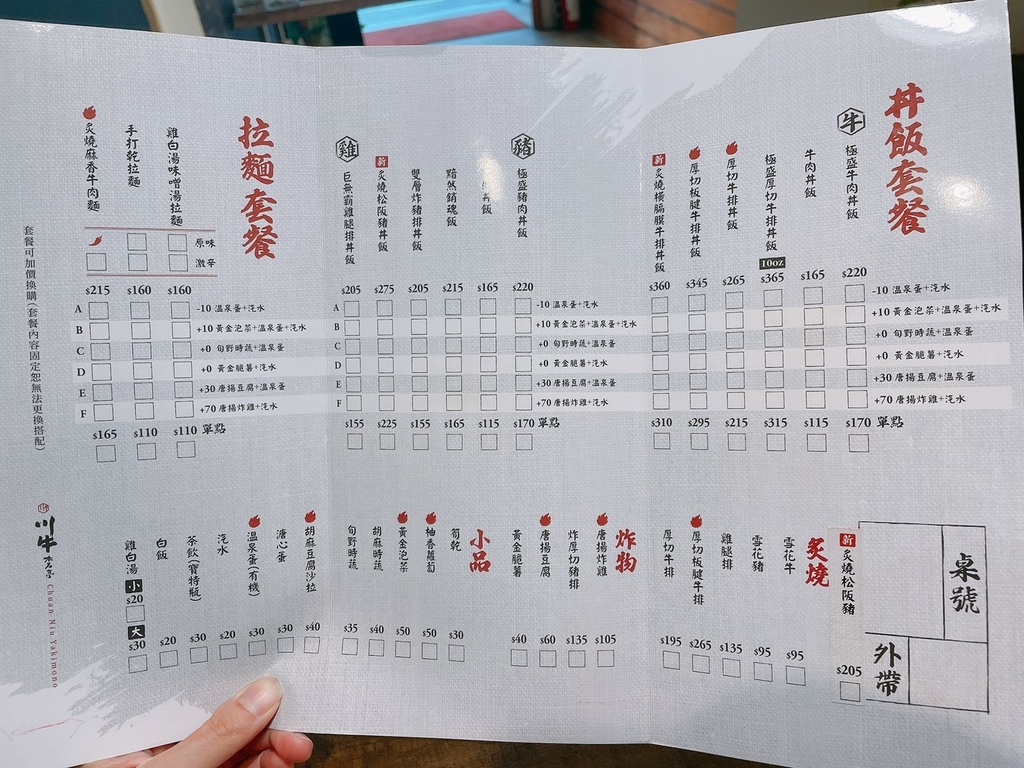 丼飯套餐
牛
極盛牛肉丼飯 $220 $170
牛肉丼飯 $165 $115
極盛厚切牛排丼飯 10oz $365 $315
厚切牛排丼飯 $265 $215
厚切板腱牛排丼飯 $345 $295
新 炙燒橫膈膜牛排丼飯 $360 $310
-10 溫泉蛋+汽水
+10 黃金泡菜+溫泉蛋+汽水
+0 旬野時蔬+溫泉蛋
+0 黃金脆薯+汽水
+30 唐揚豆腐+溫泉蛋
+70 唐揚炸雞+汽水
單點
豬
極盛豬肉丼飯 $220 $170
丼飯 $165 $115
黯然銷魂飯 $215 $165
雙層炸豬排丼飯 $205 $155
新 炙燒松阪豬丼飯 $275 $225
雞
巨無霸雞腿排丼飯 $205 $155
A
B
C
D
E
F
-10 溫泉蛋+汽水
+10 黃金泡菜+溫泉蛋+汽水
+0 旬野時蔬+溫泉蛋
+0 黃金脆薯+汽水
+30 唐揚豆腐+溫泉蛋
+70 唐揚炸雞+汽水
單點
拉麵套餐
雞白湯味噌湯拉麵 $160 $110
手打乾拉麵 $160 $110
炙燒麻香牛肉麵 $215 $165
原味
激辛
A
B
C
D
E
F
-10 溫泉蛋+汽水
+10 黃金泡菜+溫泉蛋+汽水
+0 旬野時蔬+溫泉蛋
+0 黃金脆薯+汽水
+30 唐揚豆腐+溫泉蛋
+70 唐揚炸雞+汽水
單點
套餐可加價換購(套餐內容固定恕無法更換搭配)
桌號
外帶
新 炙燒松阪豬 $205
炙燒
雪花牛 $95
雪花豬 $95
雞腿排 $135
厚切板腱牛排 $265
厚切牛排 $195
炸物
唐揚炸雞 $105
炸厚切豬排 $135
唐揚豆腐 $60
黃金脆薯 $40
小品
筍乾 $30
柚香蘿蔔 $50
黃金泡菜 $50
胡麻時蔬 $40
旬野時蔬 $35
胡麻豆腐沙拉 $40
溏心蛋 $30
溫泉蛋(有機) $30
汽水 $20
茶飲(寶特瓶) $30
白飯 $20
雞白湯 小 $20 大 $30
川牛
Chuan Niu Yakimono